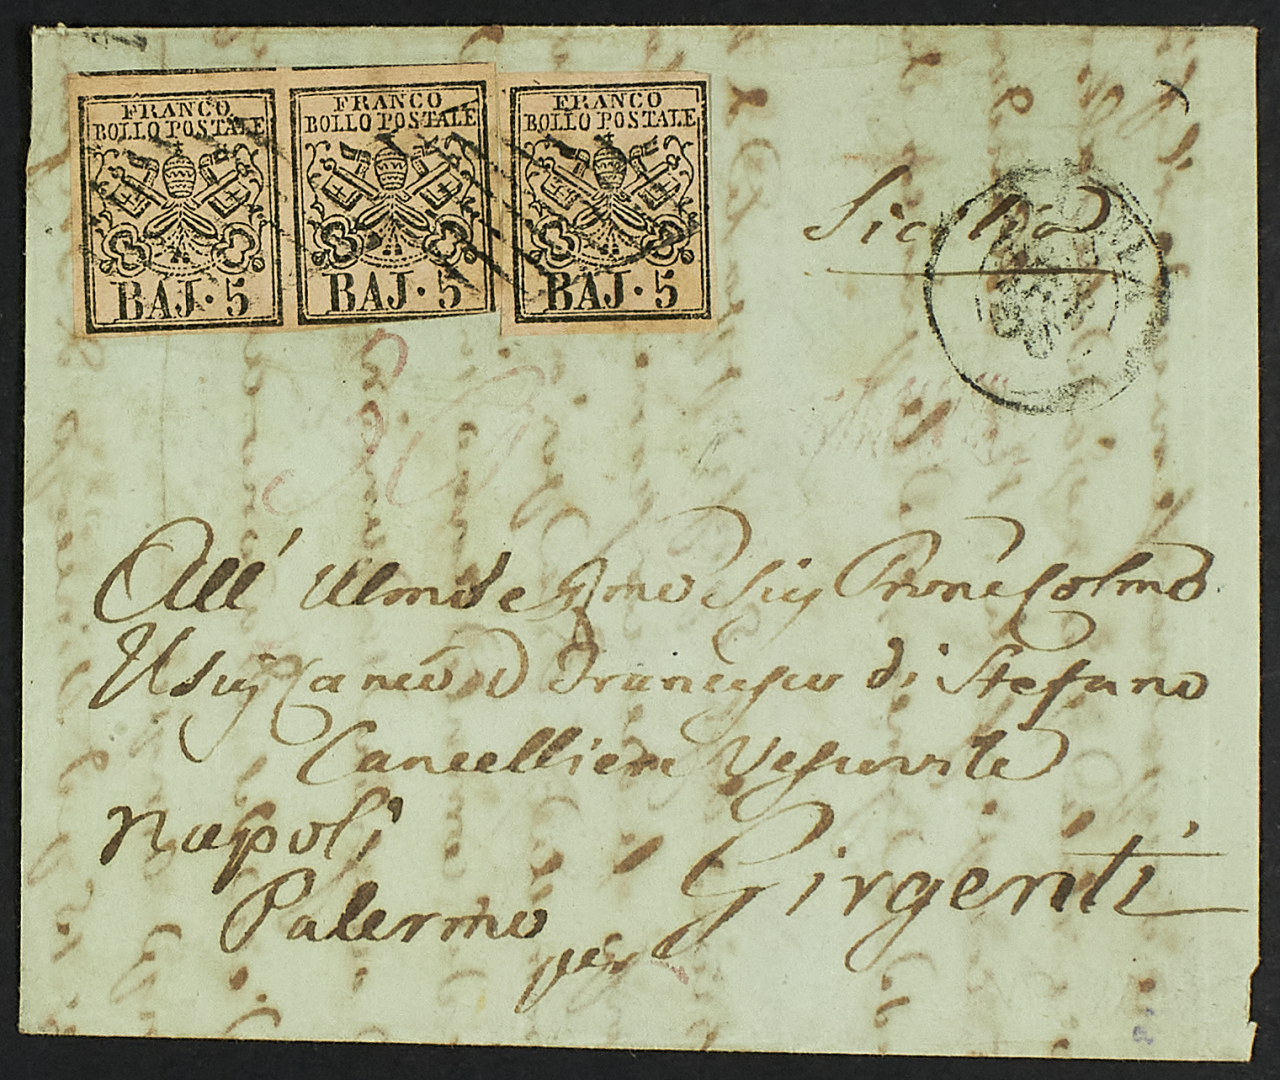 FRANCO
BOLLO POSTALE
BAJ. 5
FRANCO
BOLLO POSTALE
BAJ. 5
FRANCO
BOLLO POSTALE
BAJ. 5
Sicilia
All' Illmo e Rmo Sig Prone Colmo
Il Sig Canco D Francesco di Stefano
Cancelliere Vescovile
Napoli
Palermo
per Girgenti